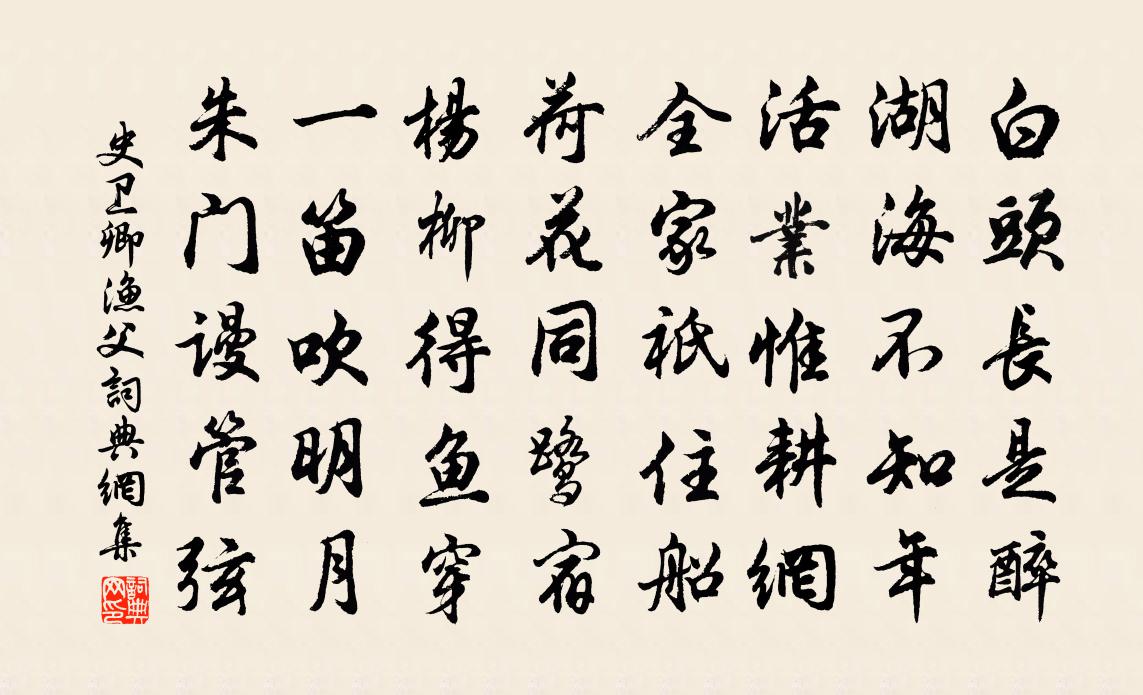 白頭長是醉
湖海不知年
活業惟耕網
全家祇住船
荷花同鷺宿
楊柳得魚穿
一笛吹明月
朱门謾管弦
史卫卿漁父詞典網集
詞典网印